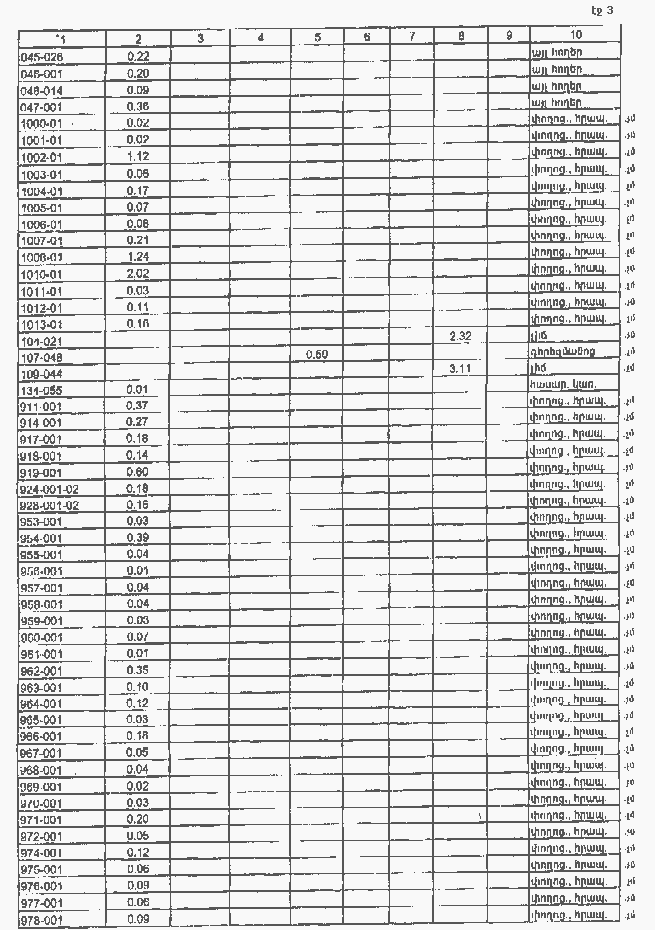 էջ 3
1 2 3 4 5 6 7 8 9 10
045-026 0.22 այլ հողեր
046-001 0.20 այլ հողեր
046-014 0.09 այլ հողեր
047-001 0.36 այլ հողեր
1000-01 0.02 փողոց., հրապ.
1001-01 0.02 փողոց., հրապ.
1002-01 1.12 փողոց., հրապ.
1003-01 0.06 փողոց., հրապ.
1004-01 0.17 փողոց., հրապ.
1005-01 0.07 փողոց., հրապ.
1006-01 0.08 փողոց., հրապ.
1007-01 0.21 փողոց., հրապ.
1008-01 1.24 փողոց., հրապ.
1010-01 2.02 փողոց., հրապ.
1011-01 0.03 փողոց., հրապ.
1012-01 0.11 փողոց., հրապ.
1013-01 0.16 փողոց., հրապ.
104-021 2.32 լիճ
107-048 0.60 գերեզմանոց
109-044 3.11 լիճ
131-055 0.01 հասար. կառ.
911-001 0.37 փողոց., հրապ.
914 001 0.27 փողոց., հրապ.
917-001 0.18 փողոց., հրապ.
918-001 0.14 փողոց., հրապ.
919-001 0.60 փողոց., հրապ.
924-001-02 0.18 փողոց., հրապ.
928-001-02 0.16 փողոց., հրապ.
953-001 0.03 փողոց., հրապ.
954-001 0.39 փողոց., հրապ.
955-001 0.04 փողոց., հրապ.
956-001 0.01 փողոց., հրապ.
957-001 0.04 փողոց., հրապ.
958-001 0.04 փողոց., հրապ.
959-001 0.03 փողոց., հրապ.
960-001 0.07 փողոց., հրապ.
961-001 0.01 փողոց., հրապ.
962-001 0.35 փողոց., հրապ.
963-001 0.10 փողոց., հրապ.
964-001 0.12 փողոց., հրապ.
965-001 0.03 փողոց., հրապ.
966-001 0.18 փողոց., հրապ.
967-001 0.05 փողոց., հրապ.
968-001 0.04 փողոց., հրապ.
969-001 0.02 փողոց., հրապ.
970-001 0.03 փողոց., հրապ.
971-001 0.20 փողոց., հրապ.
972-001 0.05 փողոց., հրապ.
974-001 0.12 փողոց., հրապ.
975-001 0.06 փողոց., հրապ.
976-001 0.09 փողոց., հրապ.
977-001 0.06 փողոց., հրապ.
978-001 0.09 փողոց., հրապ.